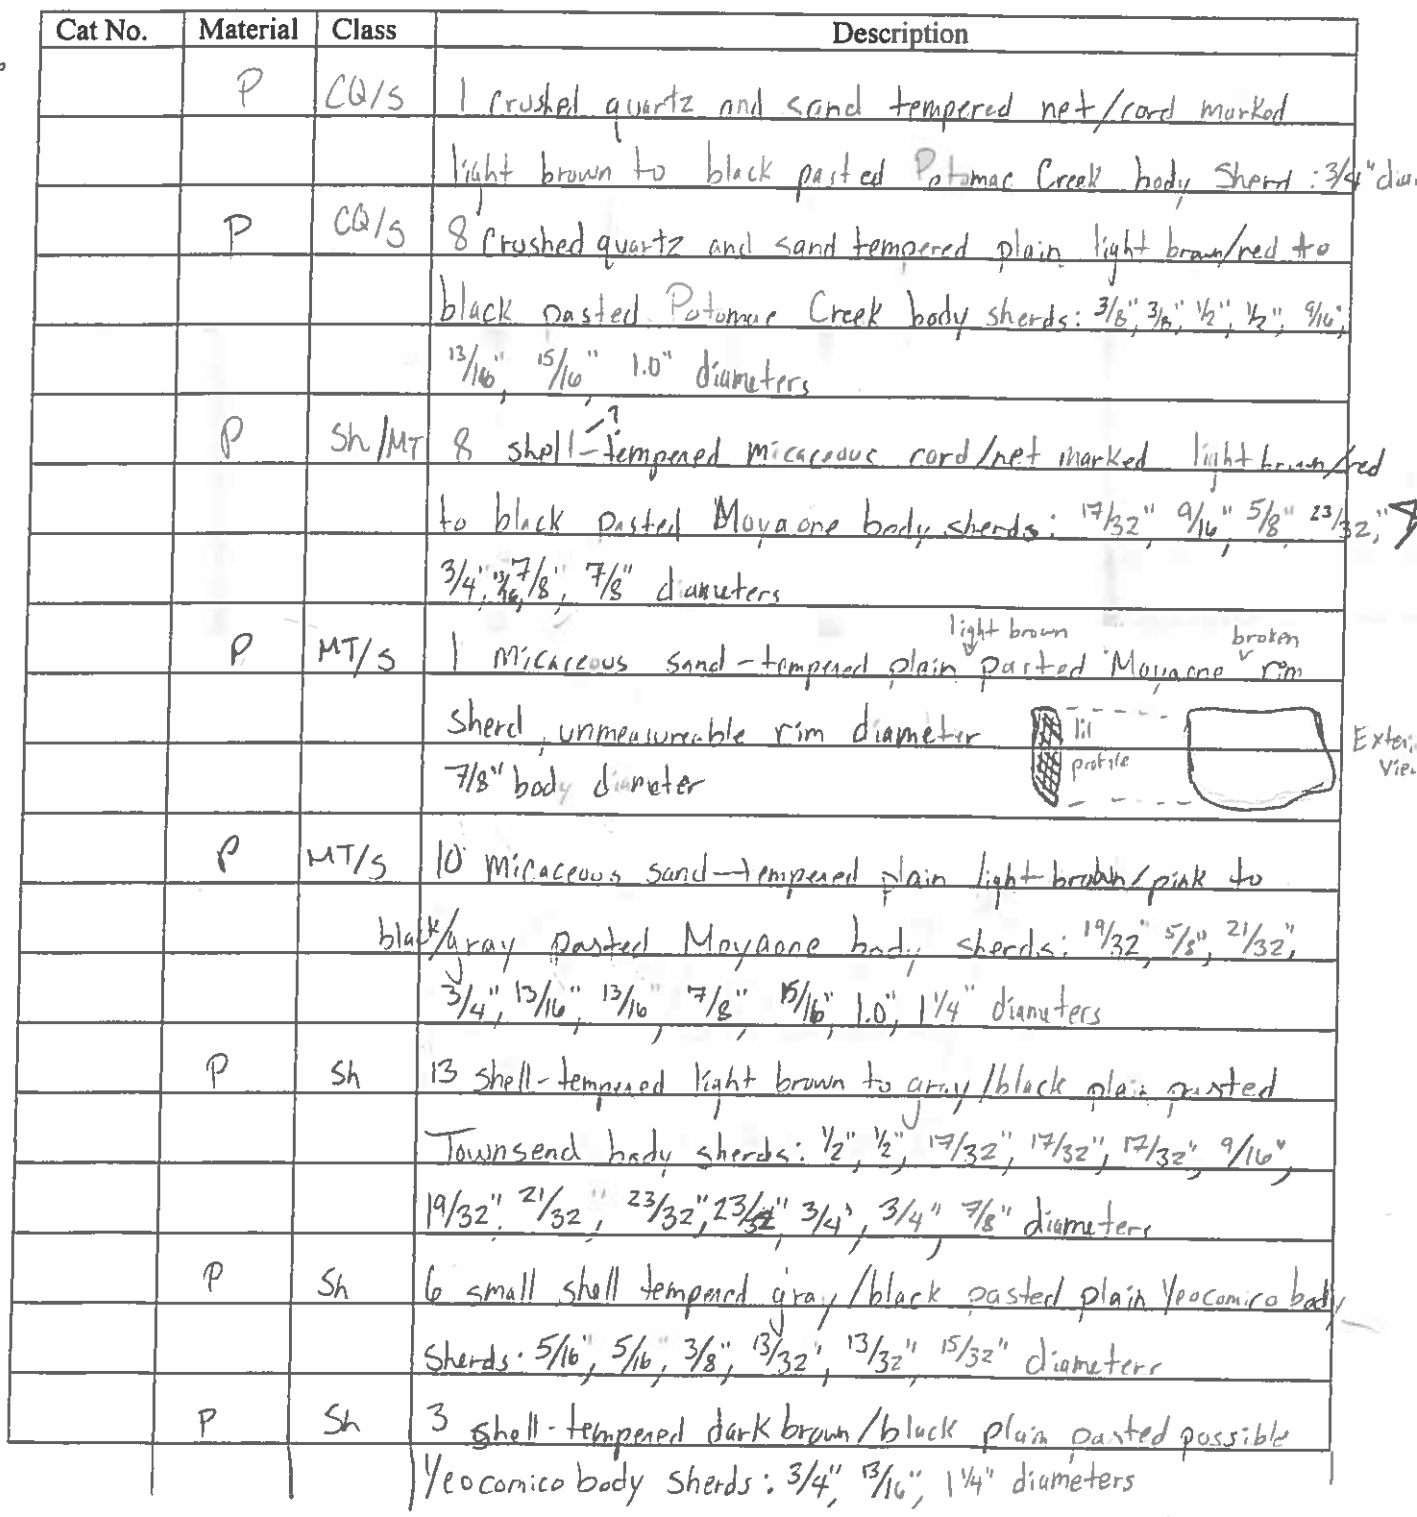 Cat No. Material Class Description
P CQ/S 1 Crushed quartz and sand tempered net/cord marked
light brown to black pasted Potomac Creek body Sherd : 3/4"
P CQ/S 8 Crushed quartz and sand tempered plain light brown/red to
black pasted Potomac Creek body sherds: 3/8", 3/8", 1/2", 1/2", 9/16",
13/16", 15/16", 1.0" diameters
?
P Sh/MT 8 shell-tempered micaceous cord/net marked light brown/red
to black pasted Moyaone body sherds: 17/32", 9/16", 5/8", 23/32",
3/4", 13/16, 7/8", 7/8" diameters
light brown broken
P MT/S 1 Micaceous sand-tempered plain pasted Moyaone rim
Sherd, unmeasureable rim diameter
7/8" body diameter
profile
P MT/S 10 Micaceous sand-tempered plain light brown/pink to
black/gray pasted Moyaone body sherds: 19/32", 5/8", 21/32",
3/4", 13/16", 13/16", 7/8", 15/16", 1.0", 1 1/4" diameters
P Sh 13 Shell-tempered light brown to gray/black plain pasted
Townsend body sherds: 1/2", 1/2", 17/32", 17/32", 17/32", 9/16",
19/32", 21/32", 23/32", 23/32", 3/4", 3/4" 7/8" diameters
P Sh 6 small shell tempered gray/black pasted plain Yeocomico body
Sherds: 5/16", 5/16, 3/8", 13/32", 13/32", 15/32" diameters
P Sh 3 shell-tempered dark brown/black plain pasted possible
Yeocomico body Sherds: 3/4", 13/16", 1 1/4" diameters